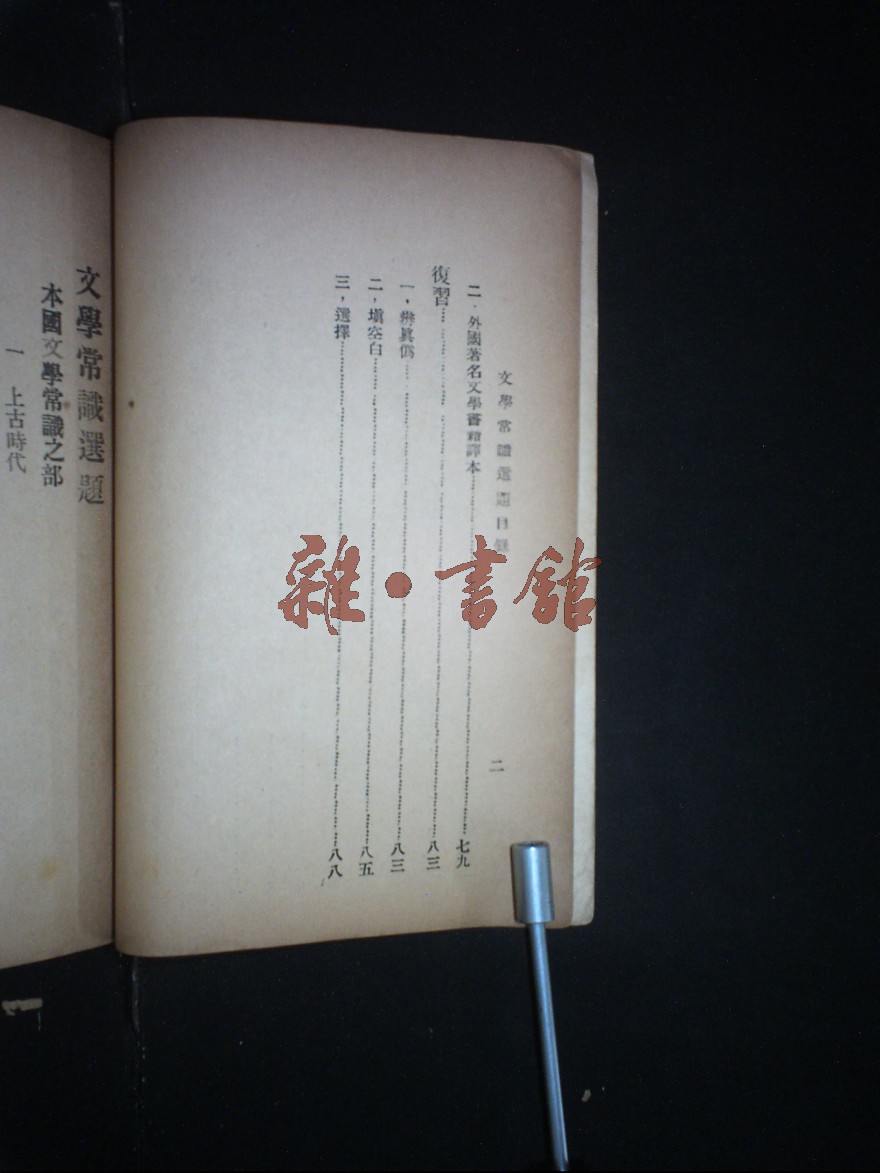 文學常識選題目錄
二
二．外國著名文學書籍譯本……七九
復習……八三
一，辨眞僞……八三
二，塡空白……八五
三，選擇……八八
文學常識選題
本國文學常識之部
一　上古時代
雜·書館